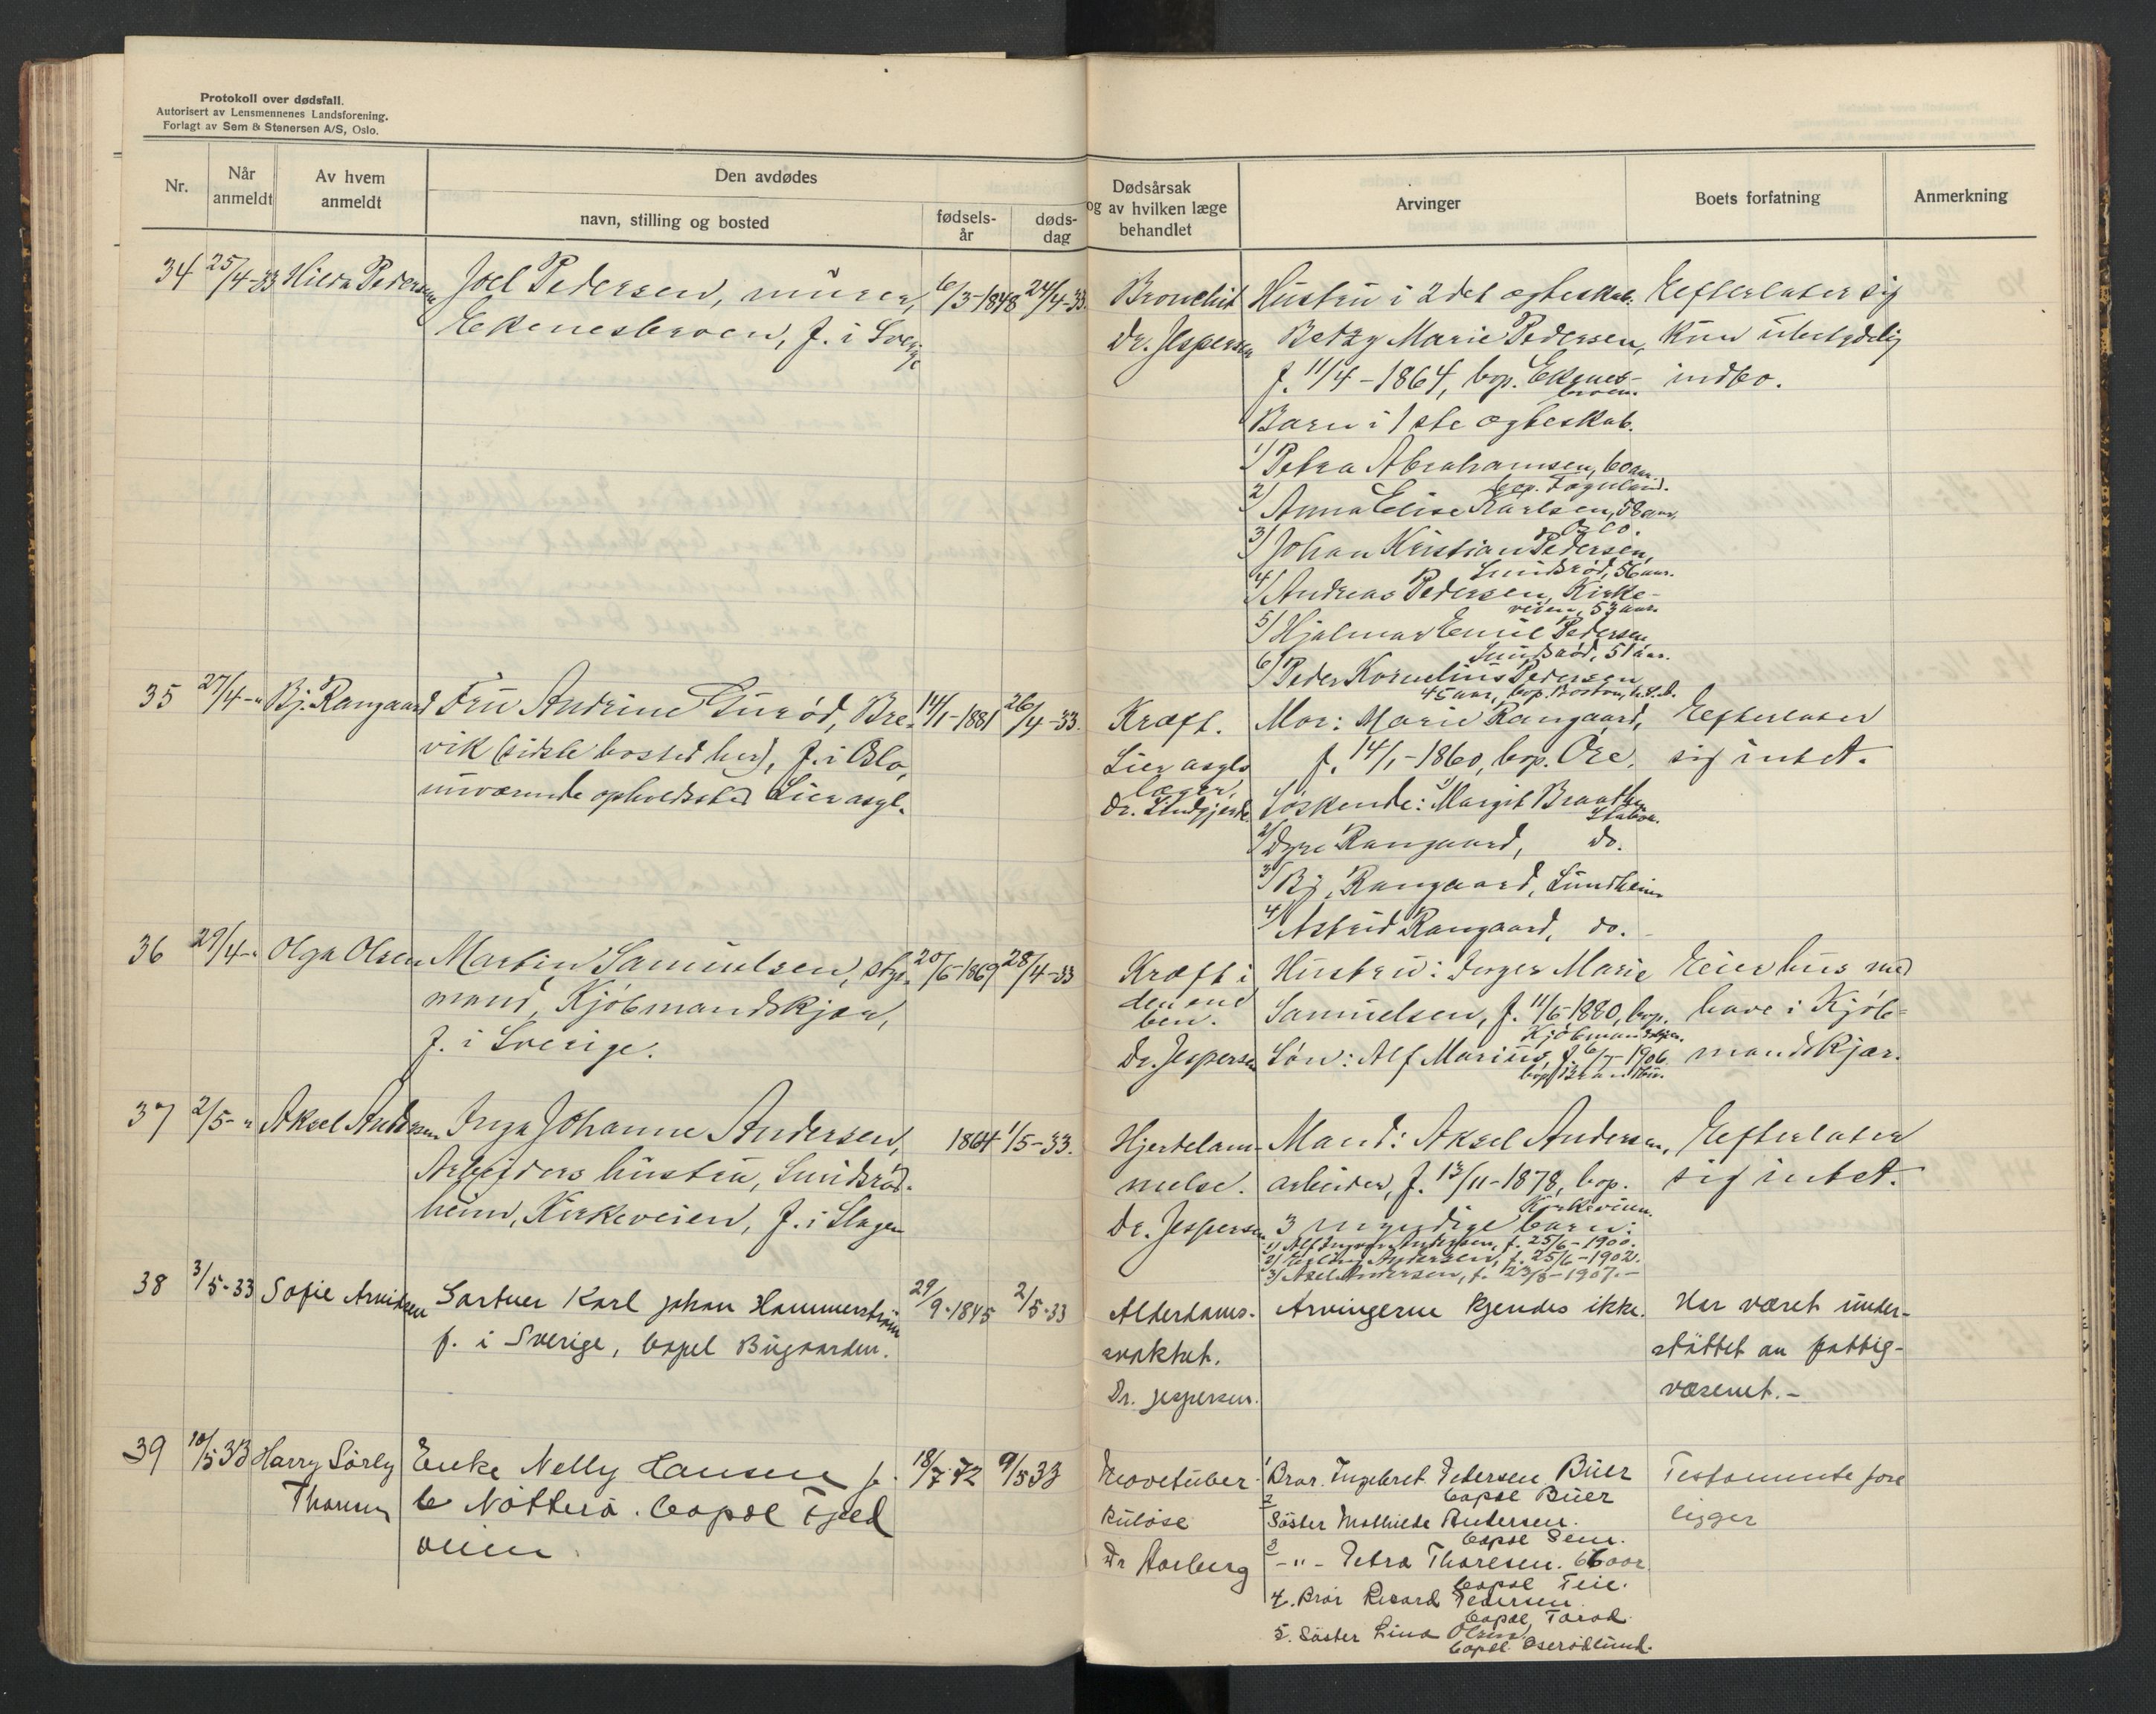 Protokoll over dødsfall.
Autorisert av Lensmennenes Landsforening.
Forlagt av Sem & Stenersen A/S, Oslo.
Nr.
Når anmeldt
Av hvem anmeldt
Den avdødes
navn, stilling og bosted
fødsels-år
døds-dag
Dødsårsak og av hvilken læge behandlet
Arvinger
Boets forfatning
Anmerkning
34 25/4-33 Hilda Pedersen Joel Pedersen, murer, 6/3-1848 24/4-33.
Ekenesbroen, f. i Sverige
Bronchit
Dr. Jespersen
Hustru i 2det egteskab.
Betzy Marie Pedersen,
f. 11/4-1864, bop. Ekenes-
broen.
Barn i 1ste egteskab.
1/ Petra Abrahamsen, 60 aar.
bop.
2/ Anna Elise Karlsen, 58 aar,
Oslo.
3/ Johan Kristian Pedersen,
Smidsrød, 56 aar.
4/ Andreas Pedersen, Kirke-
veien, 53 aar.
5/ Hjalmar Emil Pedersen
Smidsrød, 51 aar.
6/ Peder Kornelius Pedersen
45 aar, bop. Boston, U.S.A.
Efterlater sig
kun ubetydelig
indbo.
35 27/4-" Bj. Rangaard Fru Andrine Turød, Bre- 14/1-1881 26/4-33.
vik (sidste bosted her), f. i Oslo,
nuværende opholdssted Lier asyl.
Kræft.
Lier asyls
læger,
Mor: Marie Rangaard,
f. 14/1-1860, bop. Ore.
Søskende: 1/ Margit Braathen
2/ Rangaard, do.
3/ Bj. Rangaard, Sundheim
4/ Astrid Rangaard, do.
Efterlater
sig intet.
36 29/4-" Olga Olsen Martin Samuelsen, styr- 20/6-1869 28/4-33
mand, Kjøbmandskjær,
f. i Sverige.
Kræft i
det ene
ben.
Dr. Jespersen
Hustru: Inger Marie
Samuelsen, f. 11/6-1880, bop.
Kjøbmandskjær.
Søn: Alf Marius, f. 6/7-1906
bop.
Eier hus med
have i Kjøb-
mandskjær.
37 2/5-" Aksel Andersen Inga Johanne Andersen, 1864 1/5-33.
Arbeiders hustru, Smidsrød-
heim, Kirkeveien, f. i Slagen
Hjertelam-
melse.
Dr. Jespersen
Mand: Aksel Andersen,
arbeider, f. 13/11-1878, bop.
Kirkeveien.
3 myndige barn:
1) Alf Andersen, f. 25/6-1900.
2) Erling Andersen, f. 25/6-1902.
3) Axel Andersen, f. 23/8-1907.-
Efterlater
sig intet.
38 3/5-33 Sofie Arvidsen Gartner Karl Johan Hammerstrøm 29/9-1845 2/5-33
f. i Sverige, bopel Bugaarden.
Alderdoms-
svakhet.
Dr. Jespersen.
Arvingerne kjendes ikke.
Har været under-
støttet av fattig-
væsenet.-
39 10/5 33 Harry Sørby Enke Nelly Hansen f. 18/7 72 9/5 33
Thoresen
å Nøtterø. bopel Tjeld
veien.
Dr Aarberg
1 Bror. Ingebret Pedersen Buer
bopel Buer
2 Søster Mathilde Andersen.
bopel Sem.
3 -"- Petra Thoresen. 66 aar.
bopel Teie.
4. Bror Rikard Pedersen.
bopel
5. Søster Lina Olsen
bopel
Testamente fore
ligger